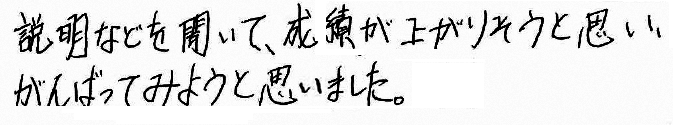 説明などを聞いて、成績が上がりそうと思い、
がんばってみようと思いました。